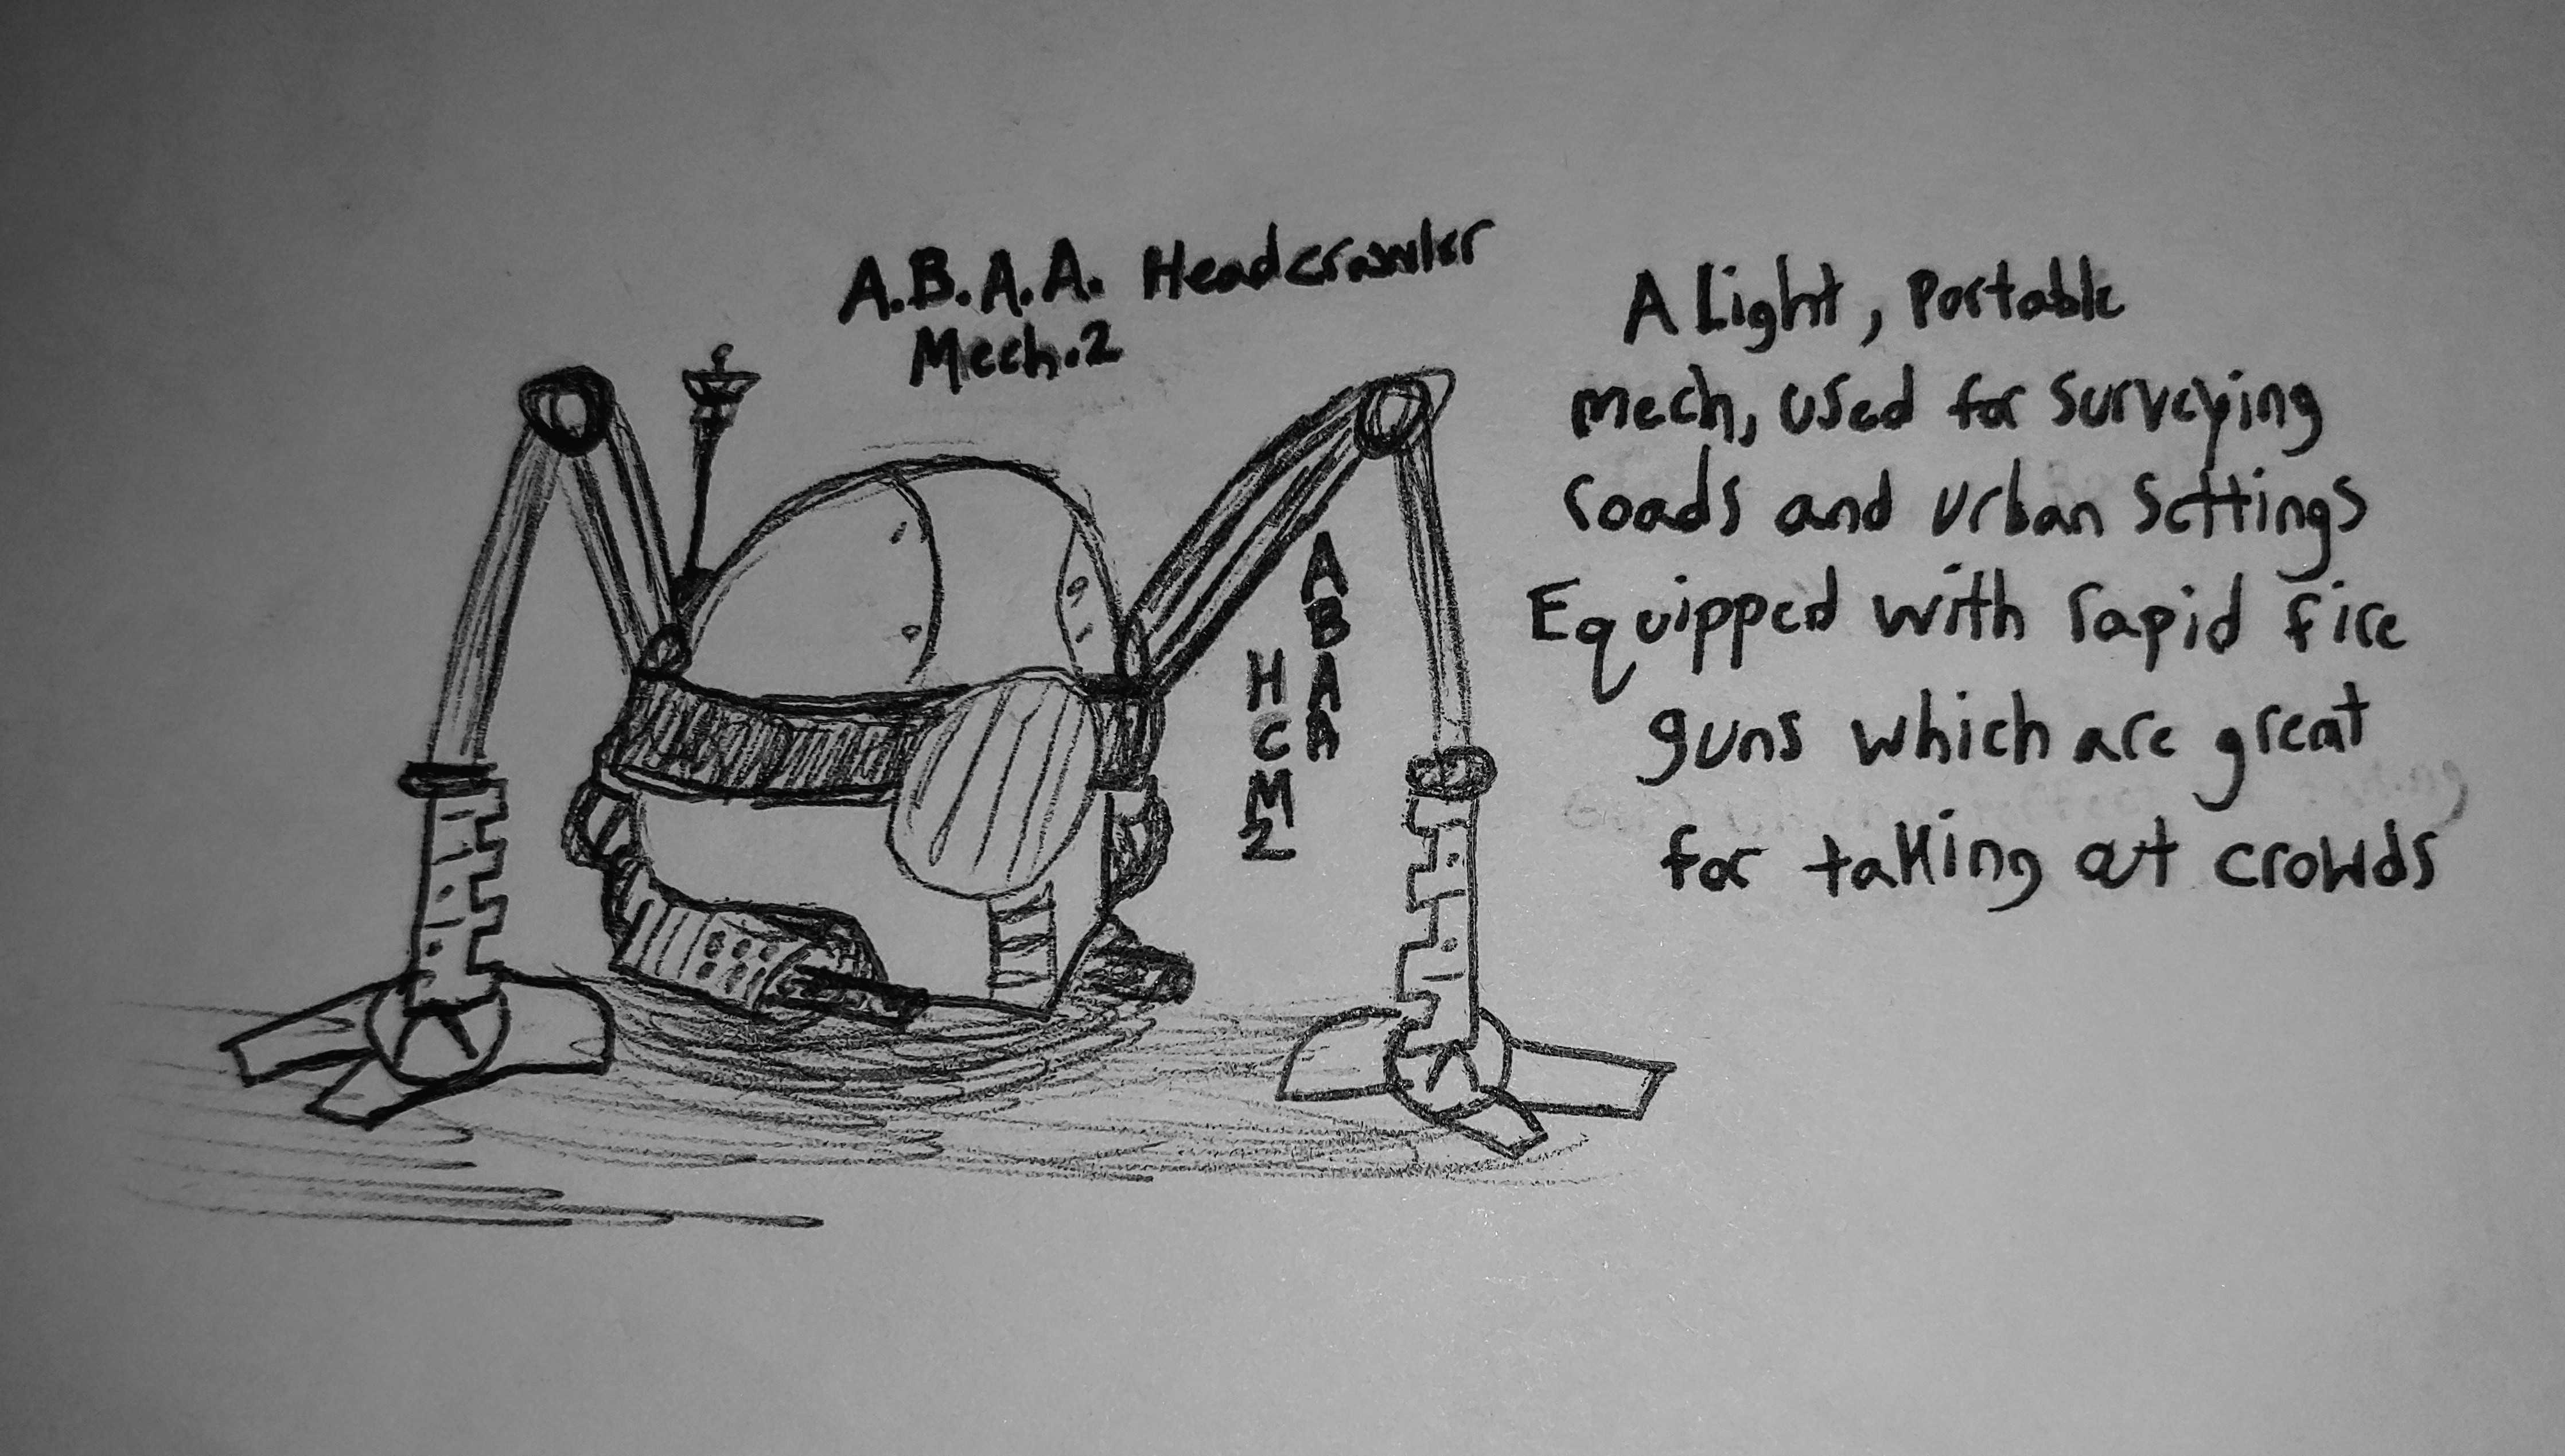 A.B.A.A. Headcrawler
Mech.2
A Light, Portable
mech, used for surveying
roads and urban settings
Equipped with rapid fire
guns which are great
for taking at crowds
A
B
A
A
H
C
M
2